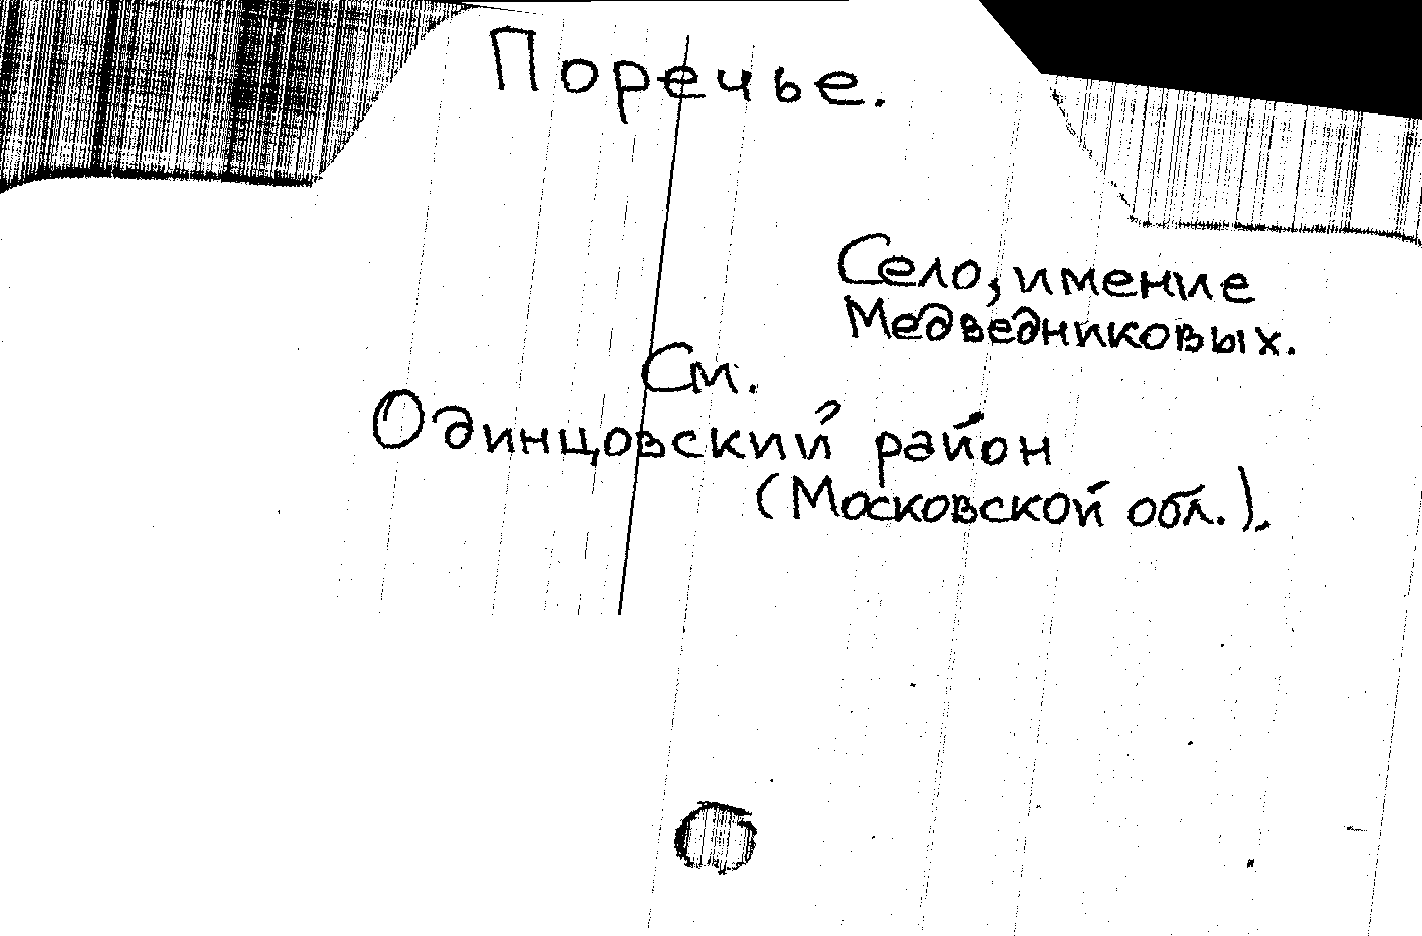 Поречье.
Село, имение
Медведниковых.
См.
Одинцовский район
(Московской обл.).